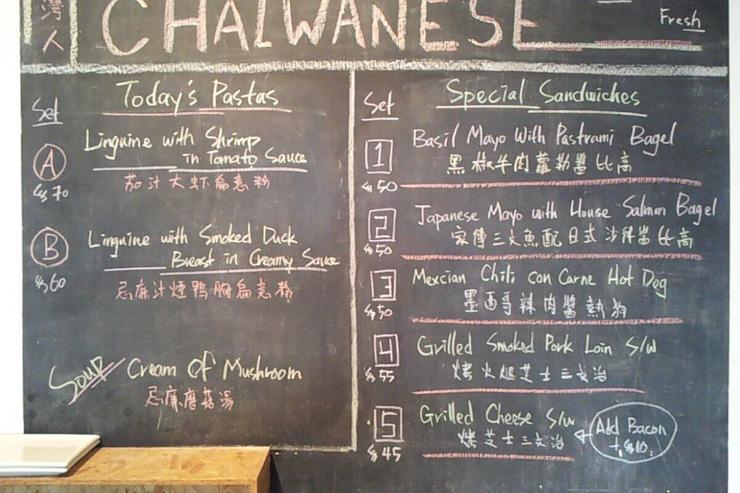 灣人 CHAIWANESE Fresh
Today's Pastas
Set
A
$70
Linguine with Shrimp
in Tomato Sauce
茄汁大虾扁意粉
B
$60
Linguine with Smoked Duck
Breast in Creamy Sauce
忌廉汁煙鴨胸扁意粉
Soup
Cream Of Mushroom
忌廉磨菇湯
Special Sandwiches
Set
1
$50
Basil Mayo With Pastrami Bagel
黑椒牛肉蘿勒醬比高
2
$50
Japanese Mayo with House Salmon Bagel
家傳三文魚配日式沙律醬比高
3
$50
Mexcian Chili con Carne Hot Dog
墨西哥辣肉醬熱狗
4
$55
Grilled Smoked Pork Loin S/w
烤火腿芝士三文治
5
$45
Grilled Cheese S/w
烤芝士三文治
Add Bacon
+$10.